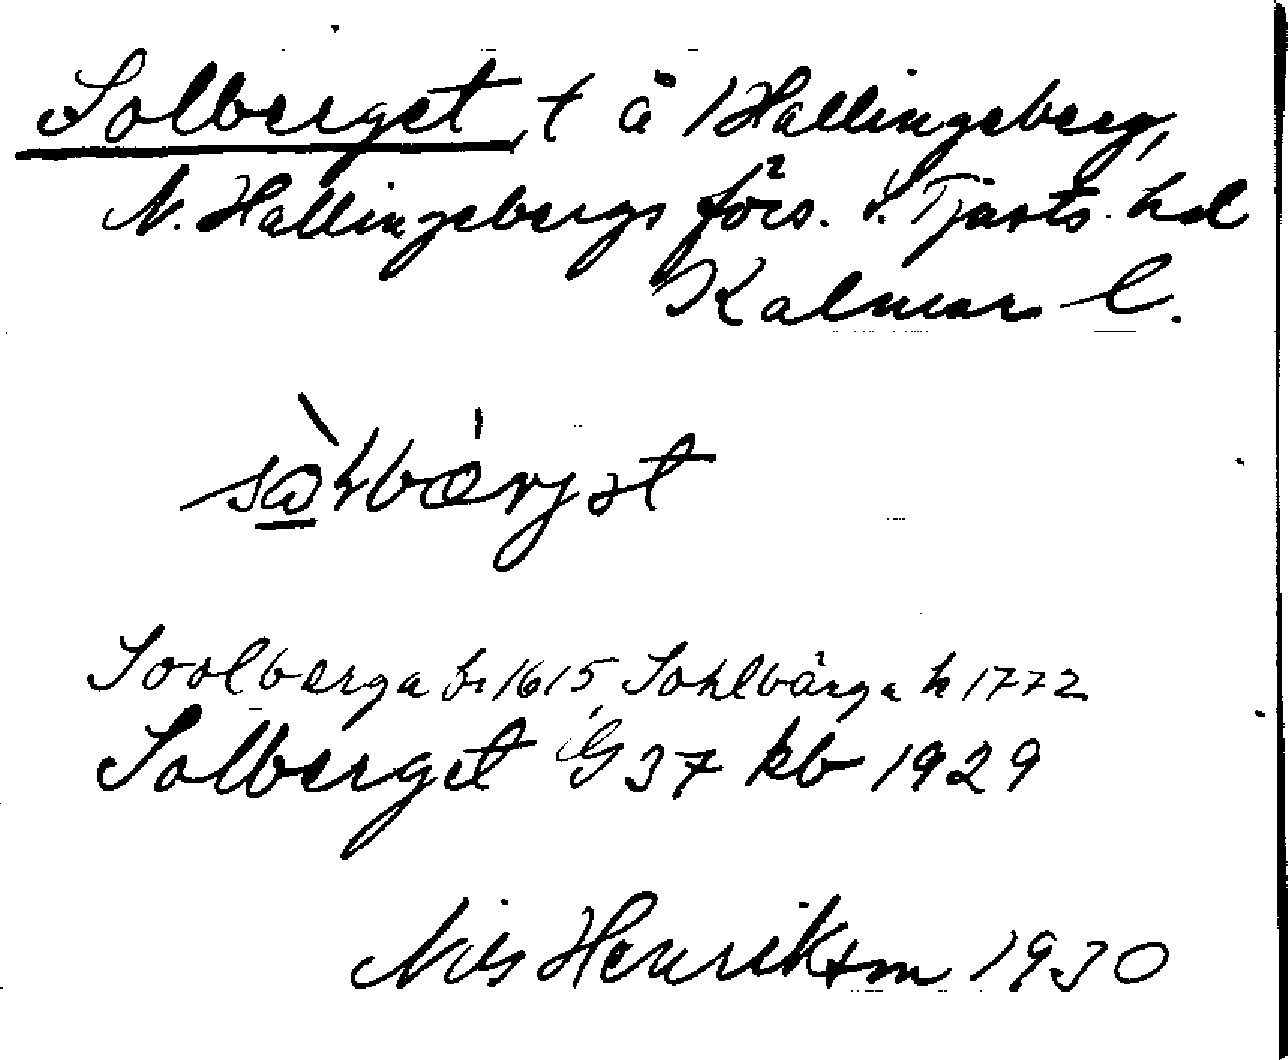 Solberget, t å Hallingeberg,
N. Hallingebergs förs. S. Tjusts. hd
Kalmar l.
Soolberga 1615, Sohlbärga h 1772
Solberget G 37 kb 1929
Nils Henrikson 1930